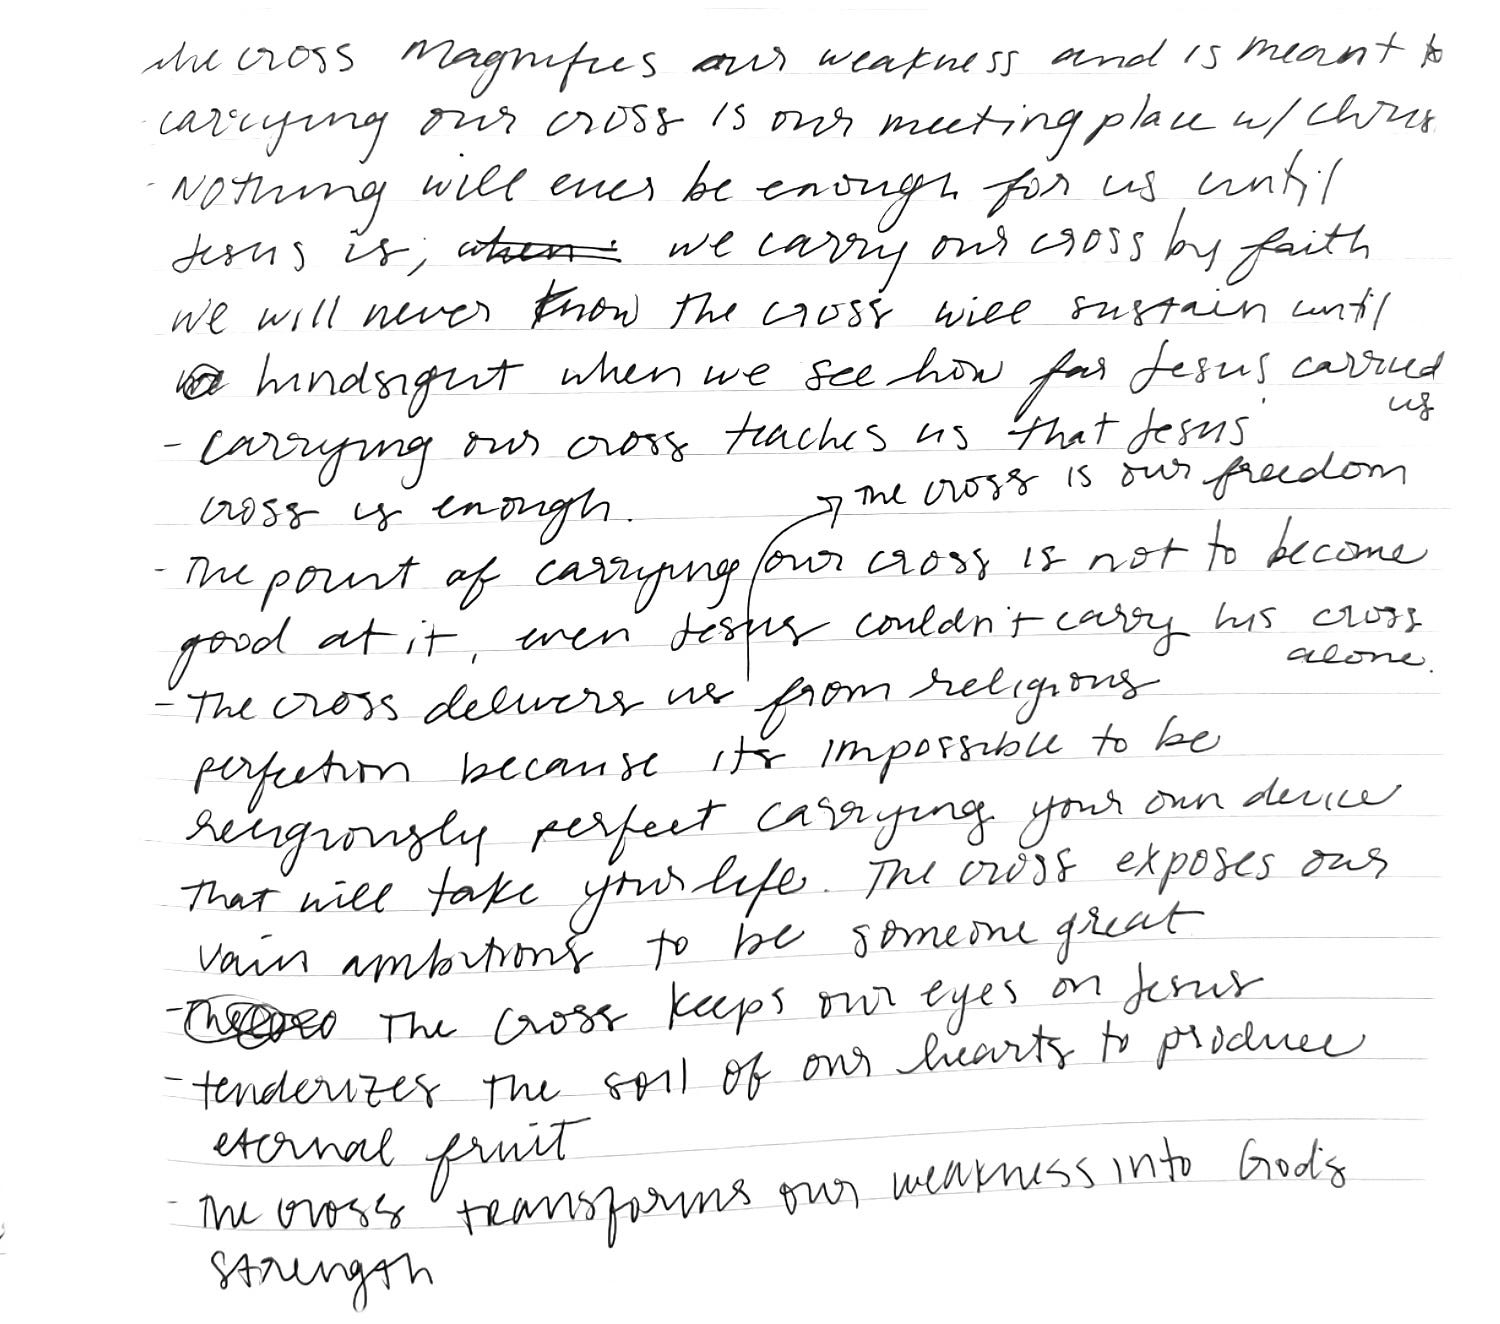 the cross magnifies our weakness and is meant to
- carrying our cross is our meeting place w/ Chris
- Nothing will ever be enough for us until
Jesus is; when we carry our cross by faith
we will never know the cross will sustain until
hindsight when we see how far Jesus carried
us
- carrying our cross teaches us that Jesus'
cross is enough.
→ The cross is our freedom
- The point of carrying our cross is not to become
good at it, even Jesus couldn't carry his cross
alone.
- The cross delivers us from religious
perfection because its impossible to be
religiously perfect carrying your own device
that will take your life. The cross exposes our
vain ambitions to be someone great
- The cross keeps our eyes on Jesus
- tenderizes the soil of our hearts to produce
eternal fruit
- The cross transforms our weakness into God's
strength